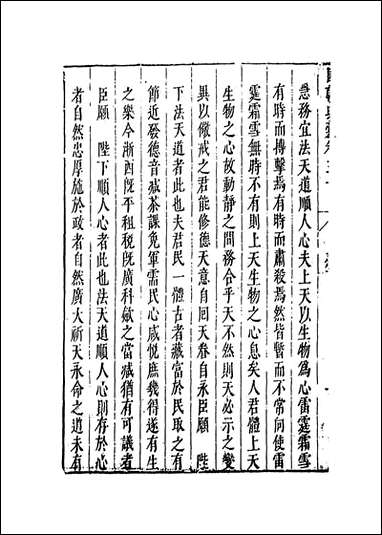 急務宜法天道順人心夫上天以生物為心雷霆霜雪
有時而搏擊焉有時而肅殺焉然皆暫而不常向使雷
霆霜雪無時不有則上天生物之心息矣人君體上天
生物之心故動靜之間務合乎天不然則天必示之變
異以儆戒之君能修德天意自回天眷自永臣願　陛
下法天道者此也夫君民一體古者藏富於民取之有
節近發德音減茶課寬軍需民心咸悅庶幾得遂有生
之樂今浙西旣平租稅旣廣科斂之當減猶有可議者
臣願　陛下順人心者此也法天道順人心則存於心
者自然忠厚施於政者自然廣大祈天永命之道未有